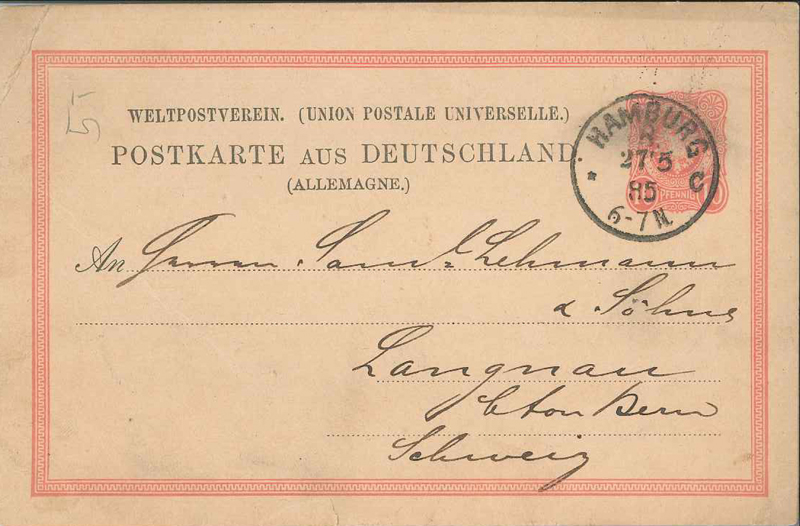 WELTPOSTVEREIN. (UNION POSTALE UNIVERSELLE.)
POSTKARTE AUS DEUTSCHLAND
(ALLEMAGNE.)
HAMBURG
27 5
85
6-7N.
C
PFENNIG
An Herren Saml. Lehmann
& Söhne
Langnau
Cton Bern
Schweiz